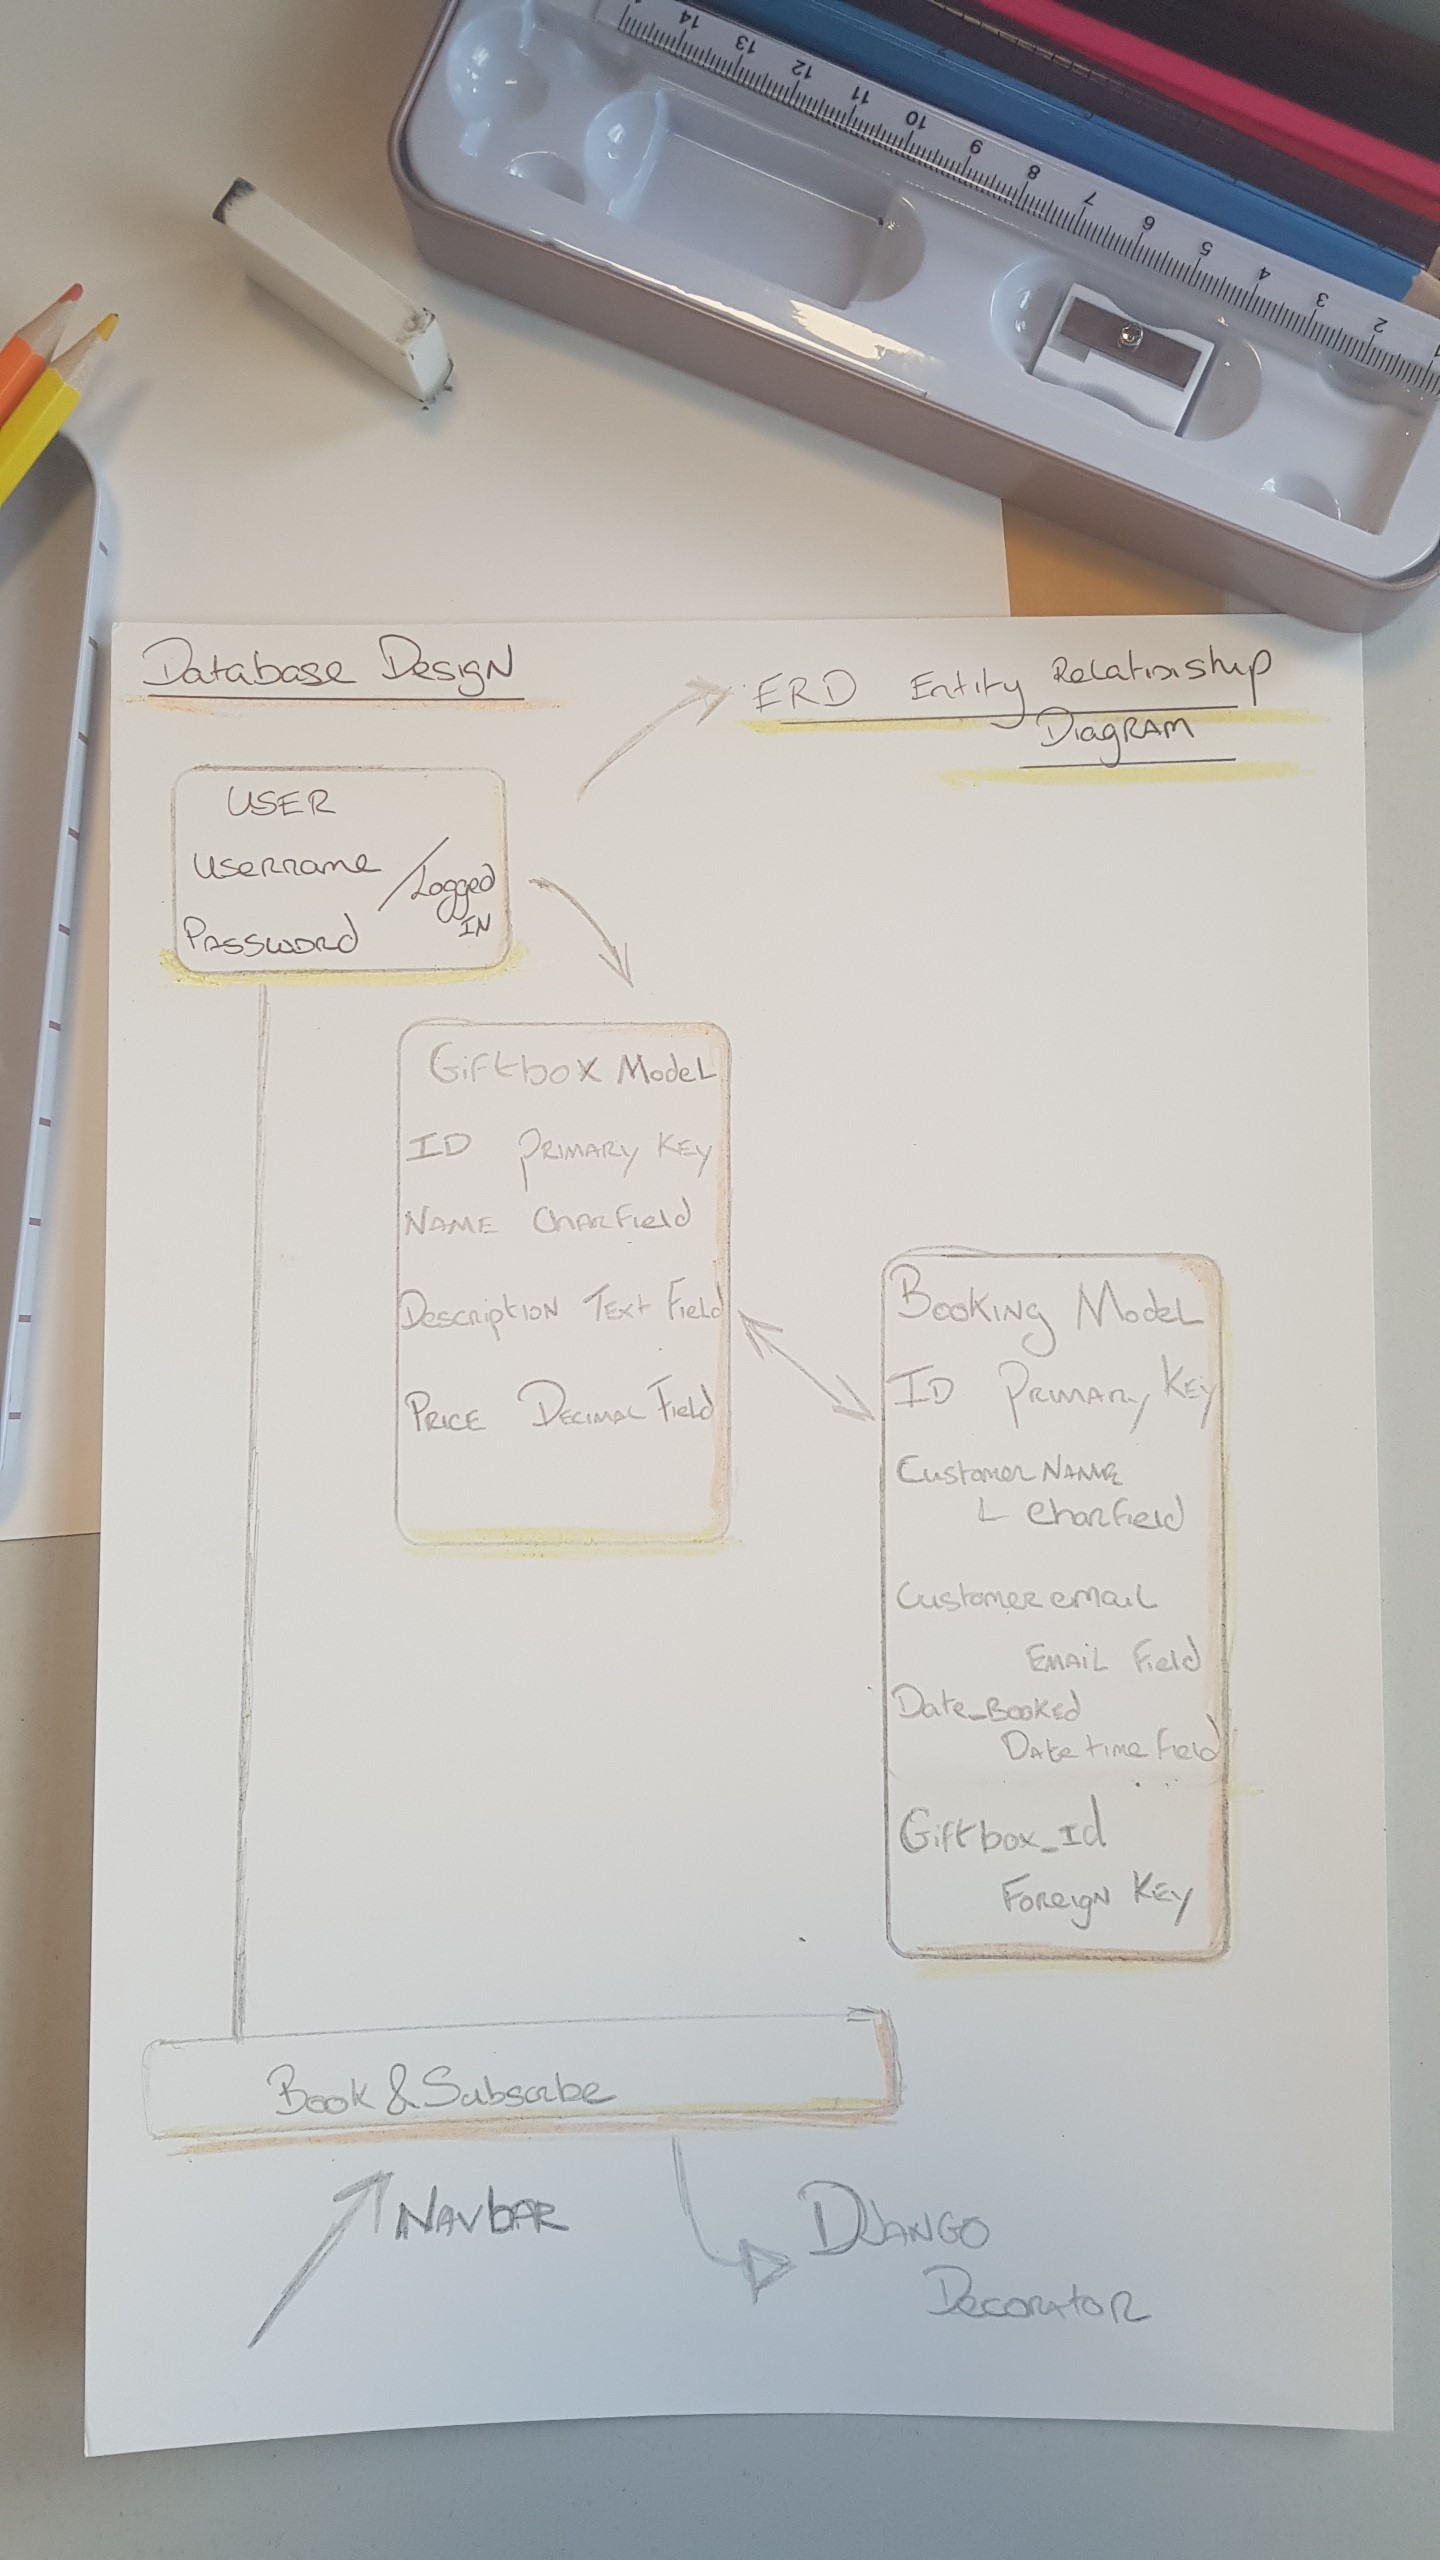 14 13 12 11 10 9 8 7 6 5 4 3 2 1
Database Design
ERD Entity Relationship
Diagram
USER
Username
/ Logged
IN
Password
Giftbox Model
ID Primary Key
Name CharField
Description Text Field
Price Decimal Field
Booking Model
ID Primary Key
Customer Name
L Charfield
Customer email
Email Field
Date_Booked
Date time field
Giftbox_Id
Foreign Key
Book & Subscribe
Navbar
Django
Decorator